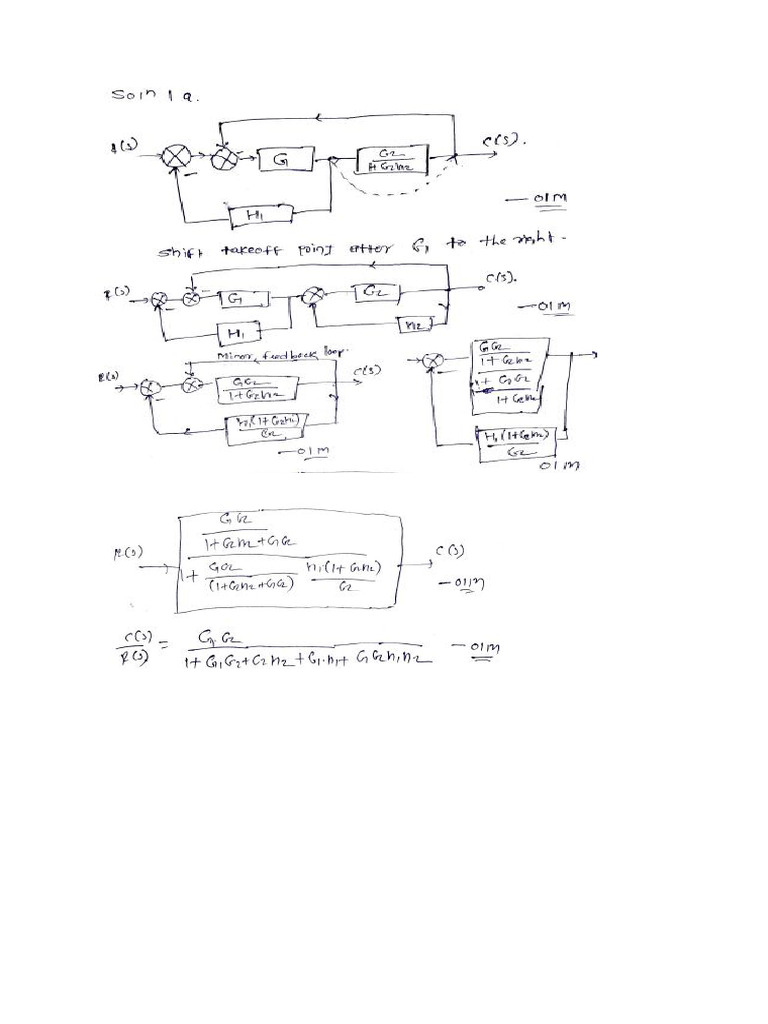 Soln 1 a.
R(s) G1 G2 / 1+G2H2 C(s).
H1
— 01M
Shift takeoff point after G1 to the right -
R(s) G1 G2 C(s).
H1 H2
— 01M
Minor feedback loop.
R(s) G1G2 / 1+G2H2 C(s)
H1(1+G2H2) / G2
— 01M
G1G2 / 1+G2H2
1 + G1G2 / 1+G2H2
H1(1+G2H2) / G2
01M
R(s) G1G2 / 1+G2H2+G1G2 C(s)
1 + G1G2 / (1+G2H2+G1G2) H1(1+G2H2) / G2
— 01M
C(s) / R(s) = G1G2 / 1+G1G2+G2H2+G1·H1+G1G2H1H2 — 01M